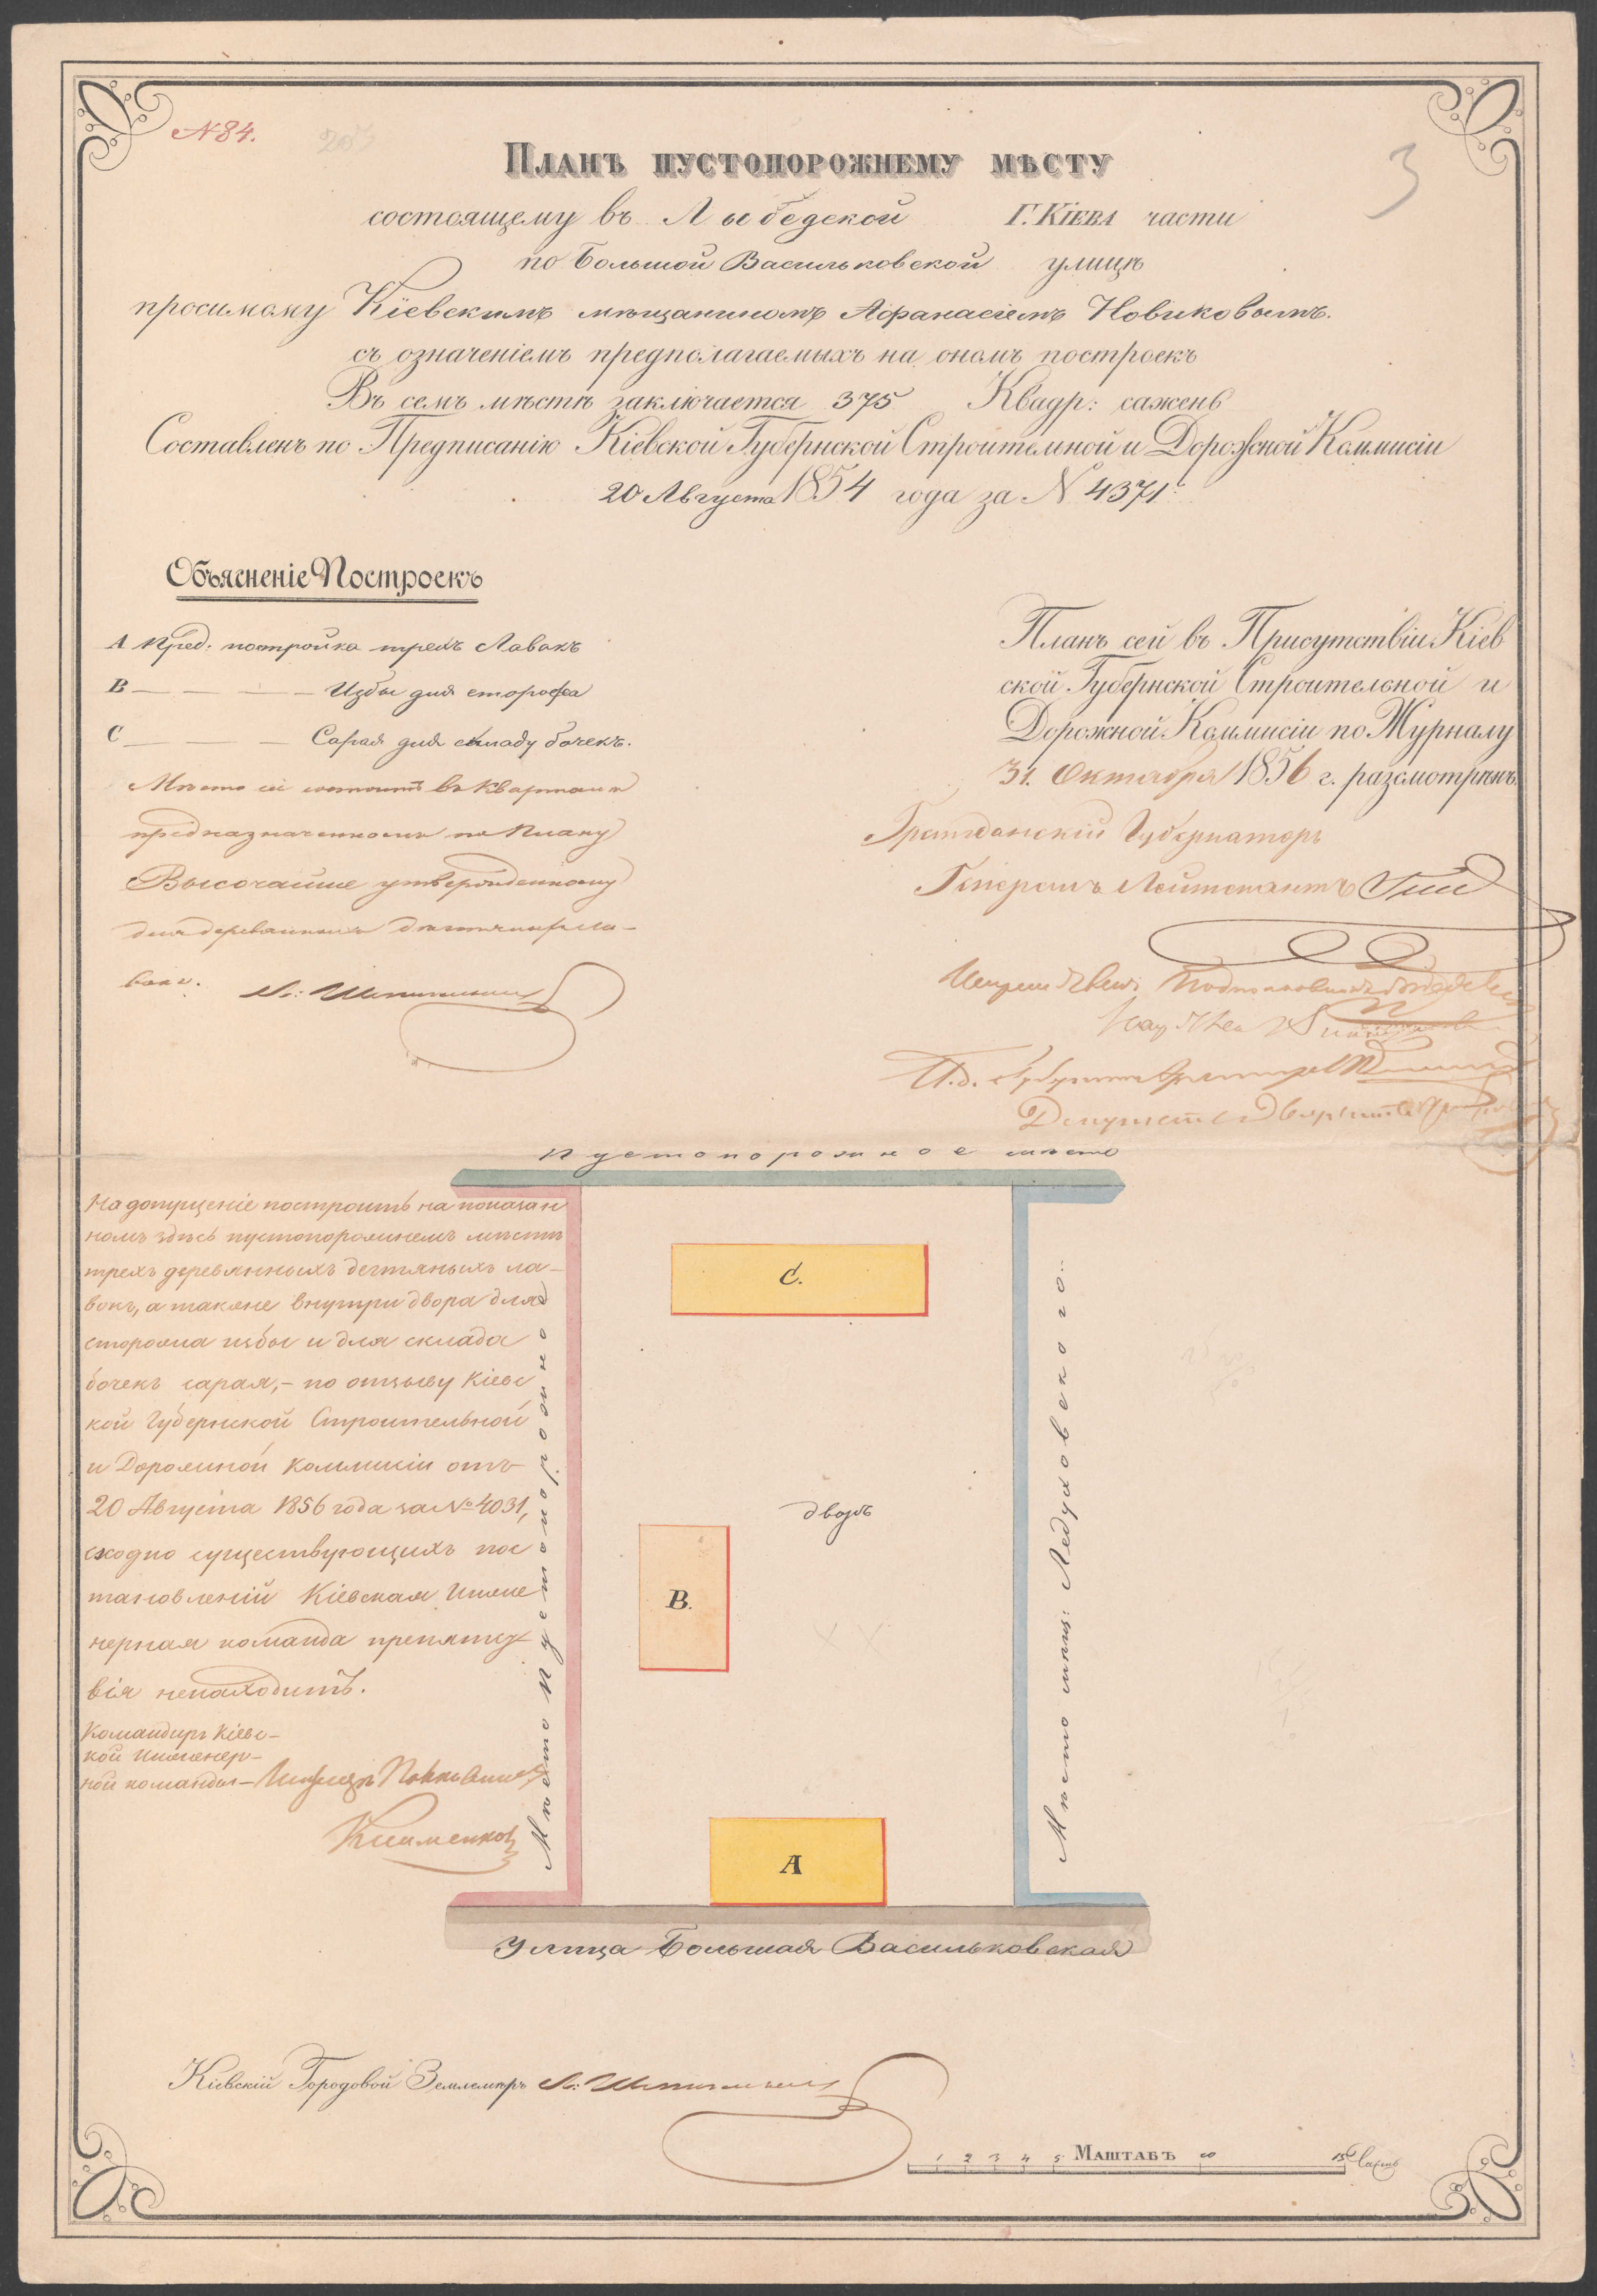 № 84.
3
Планъ пустопорожнему мѣсту
состоящему въ Лыбедской Г. Кіева части
по Большой Васильковской улицѣ
просимому Кіевскимъ мѣщаниномъ Афанасіемъ Новиковымъ.
съ означеніемъ предполагаемыхъ на ономъ построекъ
Въ семъ мѣстѣ заключается 375 Квадр: сажень
Составленъ по Предписанію Кіевской Губернской Строительной и Дорожной Коммисіи
20 Августа 1854 года за № 4371.
Объясненіе Построекъ
А Пред: постройка трехъ Лавакъ
В — — — — Избы для сторожа
С — — — Сарая для складу бочекъ.
Мѣсто сіе состоитъ въ Кварталѣ
предназначенномъ по Плану
Высочайше утвержденному
для деревянныхъ дегтярныхъ ла-
вокъ.
Планъ сей въ Присутствіи Кіев
ской Губернской Строительной и
Дорожной Коммисіи по Журналу
31. Октября 1856 г. разсмотрѣнъ.
Гражданскій Губернаторъ
Генералъ Лейтенантъ
Пустопорожное мѣсто
На допущеніе построить на показан
номъ здѣсь пустопорожнемъ мѣстѣ
трехъ деревянныхъ дегтяныхъ ла-
вокъ, а также внутри двора для
сторожа избы и для склада
бочекъ сарая,- по отзыву Кіевс
кой Губернской Строительной
и Дорожной Коммисіи отъ
20 Августа 1856 года за № 4031,
сходно существующихъ пос
тановленій Кіевская Инже
нерная команда препятст
вія ненаходитъ.
Командиръ Кіевс-
кой Инженер-
ной команды-
Клименков
Мѣсто Пустопорожно
С.
В.
дворъ
А
Мѣсто мѣщ: Ледуховскаго.
Улица Большая Васильковская
Кіевскій Городовой Землемѣръ
1 2 3 4 5 Маштабъ 10 15 Сажень